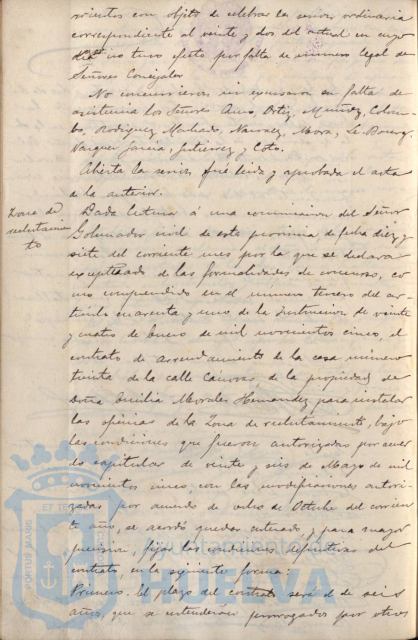 vicientos con objeto de celebrar la sesion ordinaria
correspondiente al veinte y dos del actual en cuyo
dia no tuvo efecto por falta de número legal de
Señores Concejales
No concurrieron, ni excusaron su falta de
asistencia los Señores Ortiz, Muñoz, Colom-
bo, Rodriguez Machado, Narvaez, Mora, Le-Bourg
Vazquez García, Gutierrez y Coto.
Abierta la sesion, fué leida y aprobada el acta
de la anterior.
Zona de
reclutamien
to
Dada lectura á una comunicacion del Señor
Gobernador civil de esta provincia de fecha diez y
siete del corriente mes por la que se declara
exceptuado de las formalidades de concurso, co
mo comprendido en el número tercero del ar-
tículo cuarenta y uno de la Instruccion de veinte
y cuatro de Enero de mil novecientos cinco, el
contrato de arrendamiento de la casa número
treinta de la calle Cánovas, de la propiedad de
Doña Emilia Morales Hernandez para instalar
las oficinas de la Zona de reclutamiento, bajo
las condiciones que fueron autorizadas por acuer
do capitular de veinte y seis de Mayo de mil
novecientos cinco, con las modificaciones autori-
zadas por acuerdo de ocho de Octubre del corrien
te año, se acordó quedar enterado y para mayor
precision, fijar las condiciones definitivas del
contrato, en la siguiente forma:
Primero. El plazo del contrato será el de seis
años, que se entenderán prorrogados por otros
PORTUS MARIS
ET TE
Ayuntamiento de
HUELVA